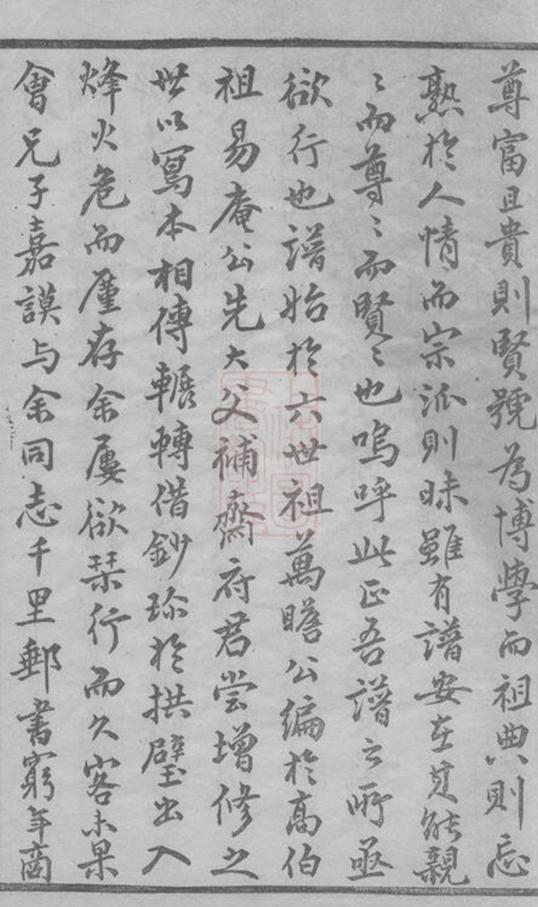 尊富且貴則賢號為博學而祖典則忘
熟於人情而宗派則昧雖有譜安在其能親
〻而尊〻而賢〻也嗚呼此正吾譜之所亟
欲行也譜始於六世祖萬瞻公編於高伯
祖易庵公先大父補齋府君嘗增修之
世以寫本相傳輾轉借鈔珍於拱璧出入
烽火危而厪存余屢欲栞行而久客未果
會兄子嘉謨与余同志千里郵書窮年商